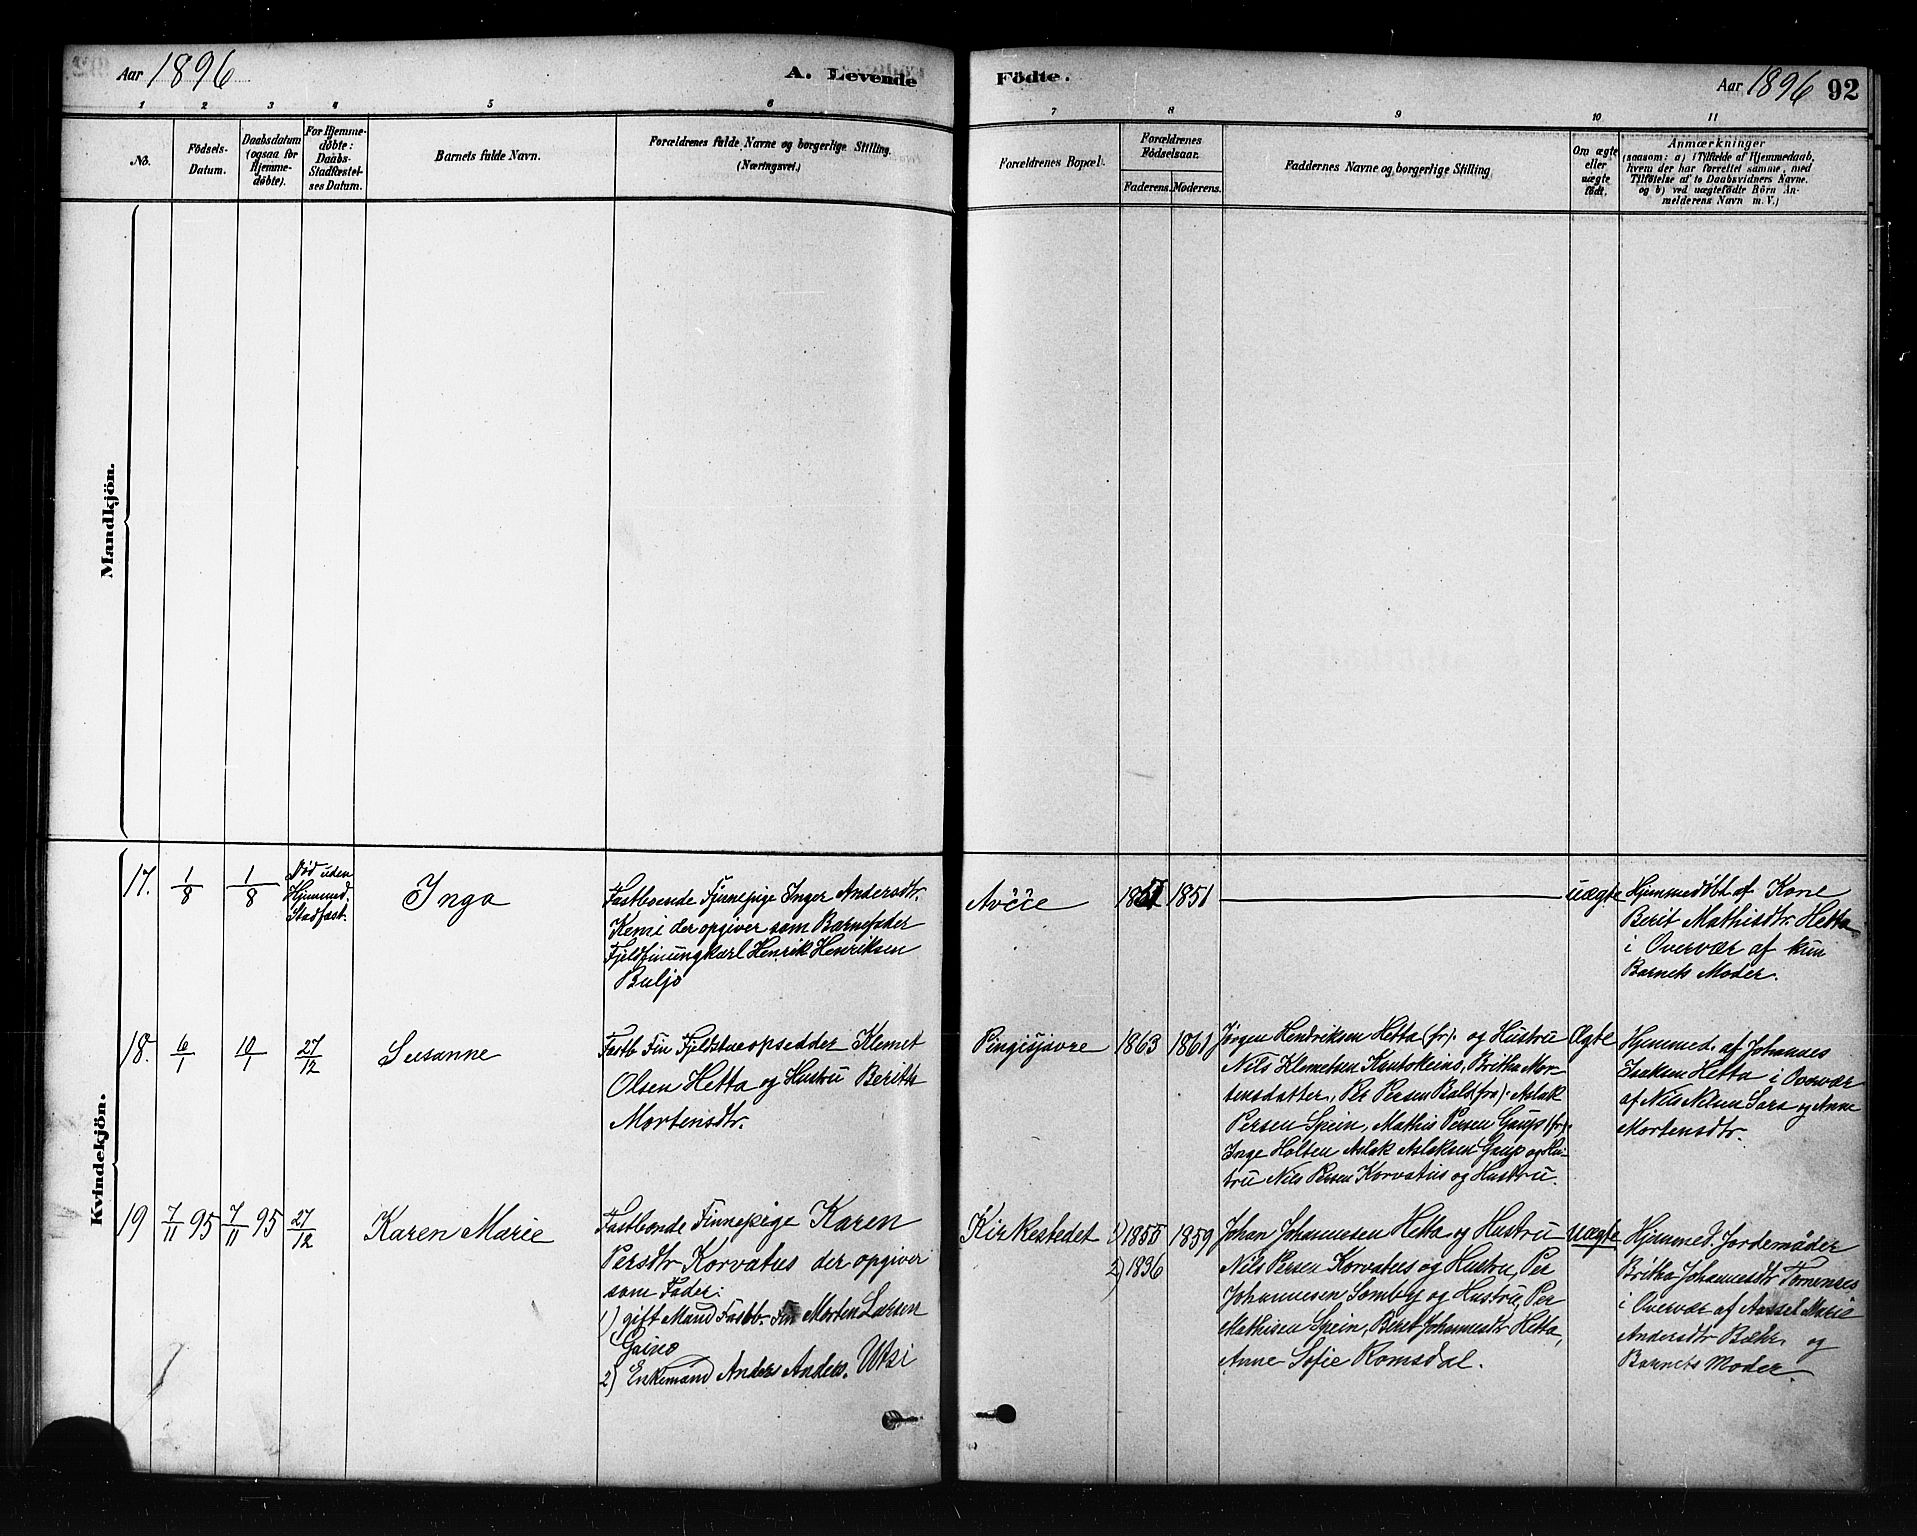 Aar 1896
A. Levende
Födte.
Aar 1896
92
1 2 3 4 5 6 7 8 9 10 11
No.
Födsels-
Datum.
Daabsdatum
(ogsaa for
Hjemme-
døbte).
For Hjemme-
døbte:
Daabs-
Stadfæstel-
ses Datum.
Barnets fulde Navn.
Forældrenes fulde Navne og borgerlige Stilling.
(Næringsvei.)
Forældrenes Bopæl.
Forældrenes
Födselsaar.
Faderens. Moderens.
Faddernes Navne og borgerlige Stilling
Om ægte
eller
uægte
født.
Anmærkninger
(saasom: a) i Tilfælde af Hjemmedaab,
hvem der har forrettet samme, med
Tilføielse af to Daabsvidners Navne,
og b) ved uægtefödte Börn An-
melderens Navn m. V.)
Mandkjön.
Kvindekjön.
17.
1/8
1/8
Død uden
Hjemmed.
Stadfæst.
Inga
Fastboende Finnepige Inger Andersdtr.
Kemi der opgiver som Barnefader
Fjeldfinungkarl Henrik Henriksen
Buljo
Avčče
1851
uægte
Hjemmedøbt af Kone
Berit Mathisdtr. Hetta
i Overvær af kun
Barnets Moder.
18.
6/1
10/1
27/12
Susanne
Fastb Fin Fjeldstueopsidder Klemet
Olsen Hetta og Hustru Berith
Mortensdtr.
Pingisjavre
1863
1861
Jørgen Hendriksen Hetta (fr). og Hustru
Nils Klemetsen Kautokeino, Britha Mor-
tensdatter, Per Persen Bals (fra). Aslak
Persen Spein, Mathis Persen Gaup (fr).
Inge Holten Aslak Aslaksen Gaup og Hu-
tru Nils Persen Korvatus og Hustru.
Ægte
Hjemmed. af Johannes
Isaksen Hetta i Overvær
af Nils Nilsen Sara og Anne
Mortensdtr.
19
7/11 95
7/11 95
27/12
Karen Marie
Fastboende Finnepige Karen
Persdtr Korvatus der opgiver
som Fader:
1) gift Mand Fastb. Fin Morten Larsen
Gaino
2) Enkemand Anders Anders. Utsi
Kirkestedet
1) 1855
2) 1836
1859
Johan Johannesen Hetta og Hustru
Nils Persen Korvatus og Hustru, Per
Johannesen Somby og Hustru, Per
Mathisen Spein, Berit Johannesdtr Hetta,
Anne Sofie Romsdal.
uægte
Hjemmed. Jordemoder
Britha Johannesdtr
i Overvær af Marie
Andersdtr Bæhr og
Barnets Moder.